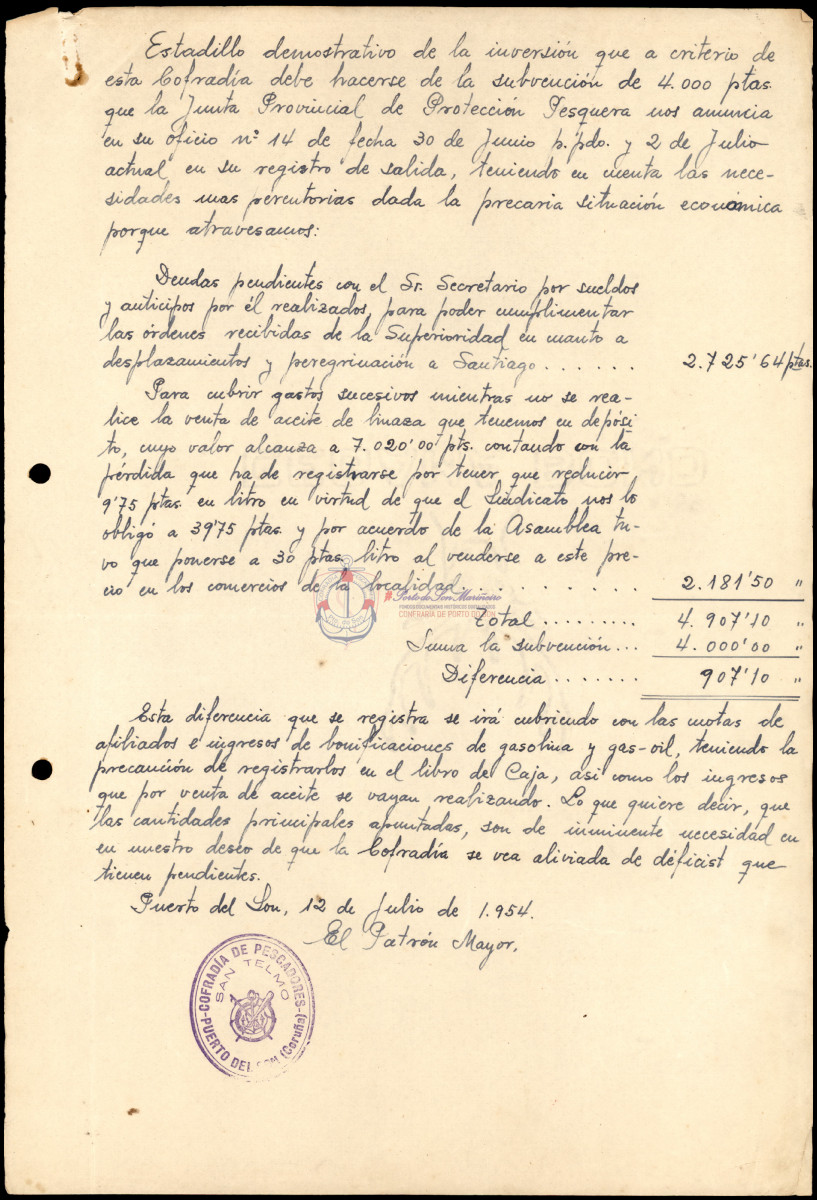 Estadillo demostrativo de la inversión que a criterio de
esta Cofradía debe hacerse de la subvención de 4.000 ptas.
que la Junta Provincial de Protección Pesquera nos anuncia
en su oficio nº 14 de fecha 30 de Junio p.pdo. y 2 de Julio
actual, en su registro de salida, teniendo en cuenta las nece-
sidades mas perentorias dada la precaria situación económica
porque atravesamos:
Deudas pendientes con el Sr. Secretario por sueldos
y anticipos por él realizados, para poder cumplimentar
las órdenes recibidas de la Superioridad en cuanto a
desplazamientos y peregrinación a Santiago . . . . . . 2.725'64 ptas.
Para cubrir gastos sucesivos mientras no se rea-
lice la venta de aceite de linaza que tenemos en depósi-
to, cuyo valor alcanza a 7.020'00 pts. contando con la
pérdida que ha de registrarse por tener que reducir
9'75 ptas. en litro en virtud de que el Sindicato nos lo
obligó a 39'75 ptas. y por acuerdo de la Asamblea tu-
vo que ponerse a 30 ptas. litro al venderse a este pre-
cio en los comercios de la localidad. . . . . . . . . . 2.181'50 "
Total . . . . . . . . . 4.907'10 "
Suma la subvención . . . 4.000'00 "
Diferencia . . . . . . . 907'10 "
Esta diferencia que se registra se irá cubriendo con las cuotas de
afiliados e ingresos de bonificaciones de gasolina y gas-oil, teniendo la
precaución de registrarlos en el libro de Caja, asi como los ingresos
que por venta de aceite se vayan realizando. Lo que quiere decir, que
las cantidades principales apuntadas, son de inminente necesidad en
en nuestro deseo de que la Cofradía se vea aliviada de déficist que
tienen pendientes.
Puerto del Son, 12 de Julio de 1.954.
El Patrón Mayor,
COFRADÍA DE PESCADORES
SAN TELMO
PUERTO DEL SON (Coruña)
Porto do Son Mariñeiro
CONFRARÍA DE PORTO DO SON